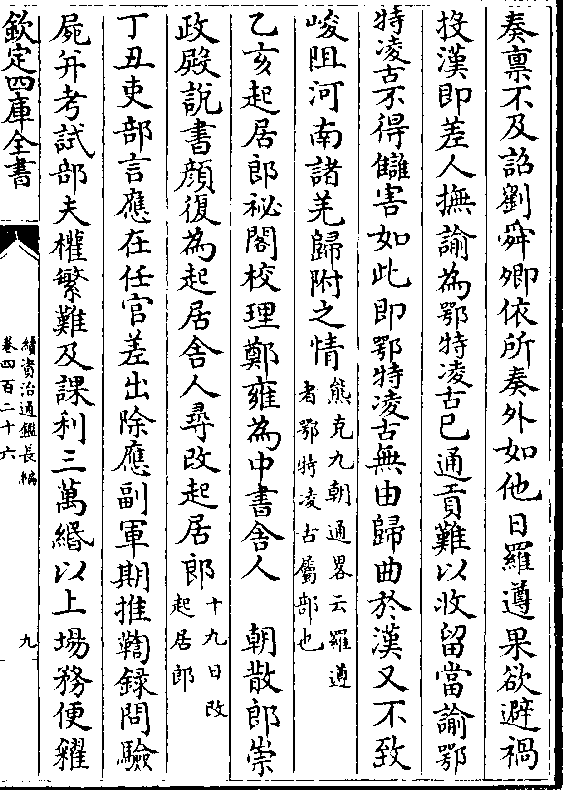 奏禀不及詔劉舜卿依所奏外如他日羅遵果欲避禍
投漢即差人撫諭為鄂特凌古已通貢難以收留當諭鄂
特凌古不得讎害如此即鄂特凌古無由歸曲於漢又不致
峻阻河南諸羌歸附之情熊克九朝通畧云羅遵者鄂特凌古屬部也
乙亥起居郎祕閣校理鄭雍為中書舍人　朝散郎崇
政殿說書顔復為起居舍人尋改起居郎十九日改起居郎
丁丑吏部言應在任官差出除應副軍期推鞫録問驗
屍并考試部夫權繁難及課利三萬緡以上場務便糴
欽定四庫全書
續資治通鑑長編
卷四百二十六
九